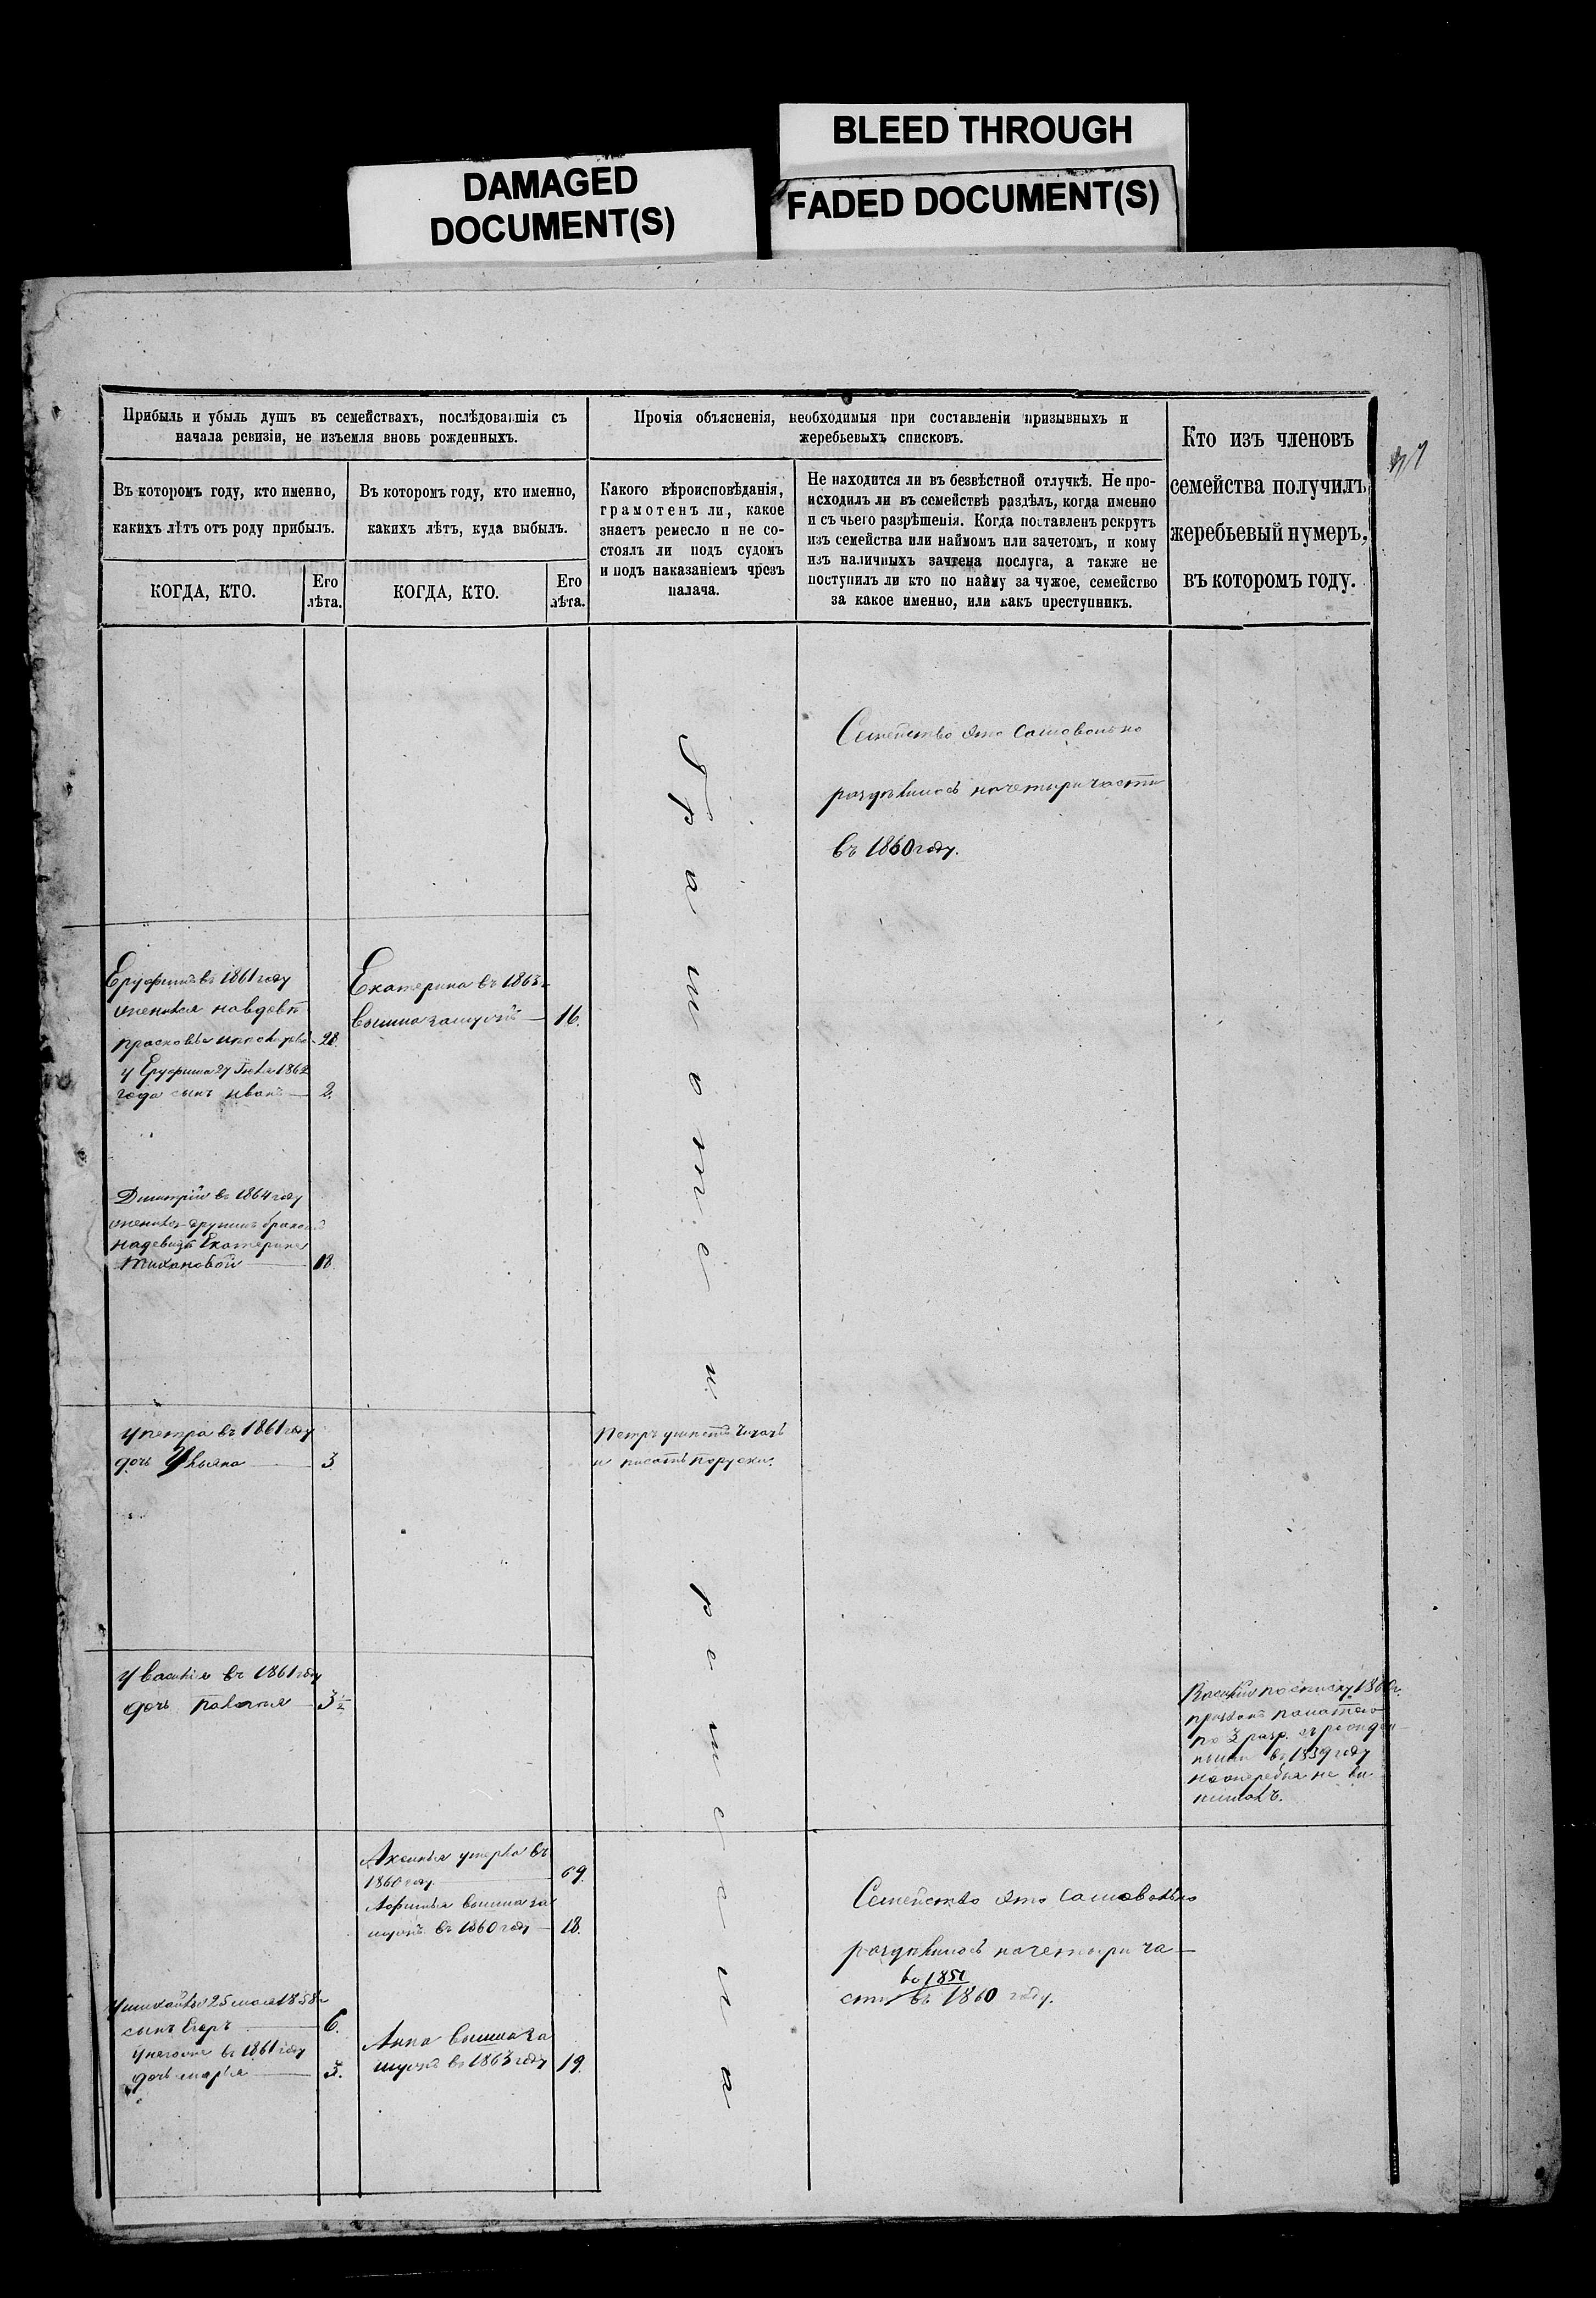 BLEED THROUGH
DAMAGED
DOCUMENT(S)
FADED DOCUMENT(S)
Прибыль и убыль душъ въ семействахъ, послѣдовавшія съ
начала ревизіи, не изъемля вновь рожденныхъ.
Въ которомъ году, кто именно,
какихъ лѣтъ отъ роду прибылъ.
КОГДА, КТО.
Его
лѣта.
Въ которомъ году, кто именно,
какихъ лѣтъ, куда выбылъ.
КОГДА, КТО.
Его
лѣта.
Прочія объясненія, необходимыя при составленіи призывныхъ и
жеребьевыхъ списковъ.
Какого вѣроисповѣданія,
грамотенъ ли, какое
знаетъ ремесло и не со-
стоялъ ли подъ судомъ
и подъ наказаніемъ чрезъ
палача.
Не находится ли въ безвѣстной отлучкѣ. Не про-
исходилъ ли въ семействѣ раздѣлъ, когда именно
и съ чьего разрѣшенія. Когда поставленъ рекрутъ
изъ семейства или наймомъ или зачетомъ, и кому
изъ наличныхъ зачтена послуга, а также не
поступилъ ли кто по найму за чужое, семейство
за какое именно, или какъ преступникъ.
Кто изъ членовъ
семейства получилъ
жеребьевый нумеръ,
въ которомъ году.
Семейство это самовольно
раздѣлилось на четыри части
въ 1860 году.
въ 1861 году
женился на вдовѣ
28.
у 27 1862
года сынъ Иванъ 2.
Екатерина въ 1863
вышла замужъ 16.
Дмитрій въ 1864 году
женился другимъ бракомъ
на девицѣ Екатерине
18.
у Петра въ 1861 году
дочь Ульяна 3
Петръ умѣетъ читать
и писать поруски.
у Василія въ 1861 году
дочь 3½
Василій по списку
по 3 разр.
въ 1859 году
на очередь не
Аксинья умерла въ
1860 году 69.
вышла за
мужъ въ 1860 году 18.
Семейство это самовольно
раздѣлилось на четыри ча-
1851
сти въ 1860 году.
25 1858
сынъ Егоръ 6.
у него же въ 1861 году
дочь Марья 3.
Анна вышла за
мужъ въ 1863 году 19.